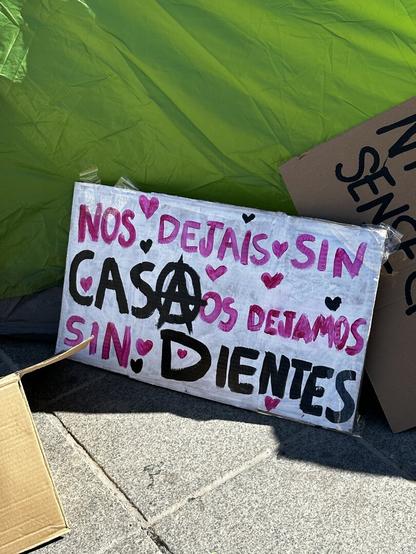 NOS DEJAIS SIN
CASA OS DEJAMOS
SIN DIENTES